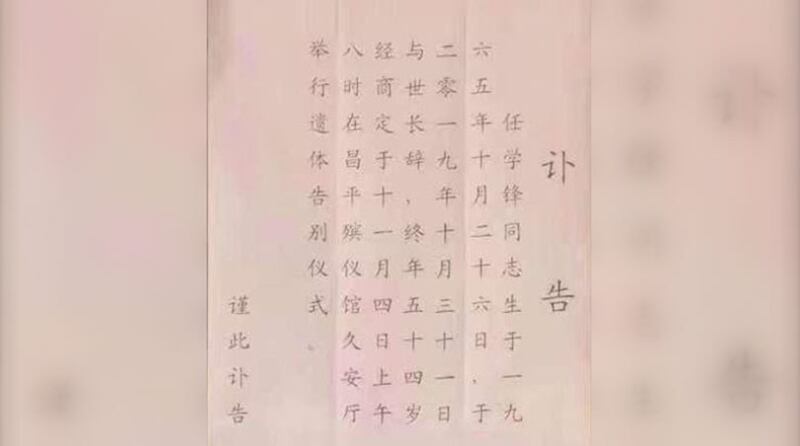 讣告
任学锋同志生于一九
六五年十月二十六日，于
二零一九年十月三十一日
与世长辞，终年五十四岁
经商定于十一月四日上午
八时在昌平殡仪馆久安厅
举行遗体告别仪式。
谨此讣告